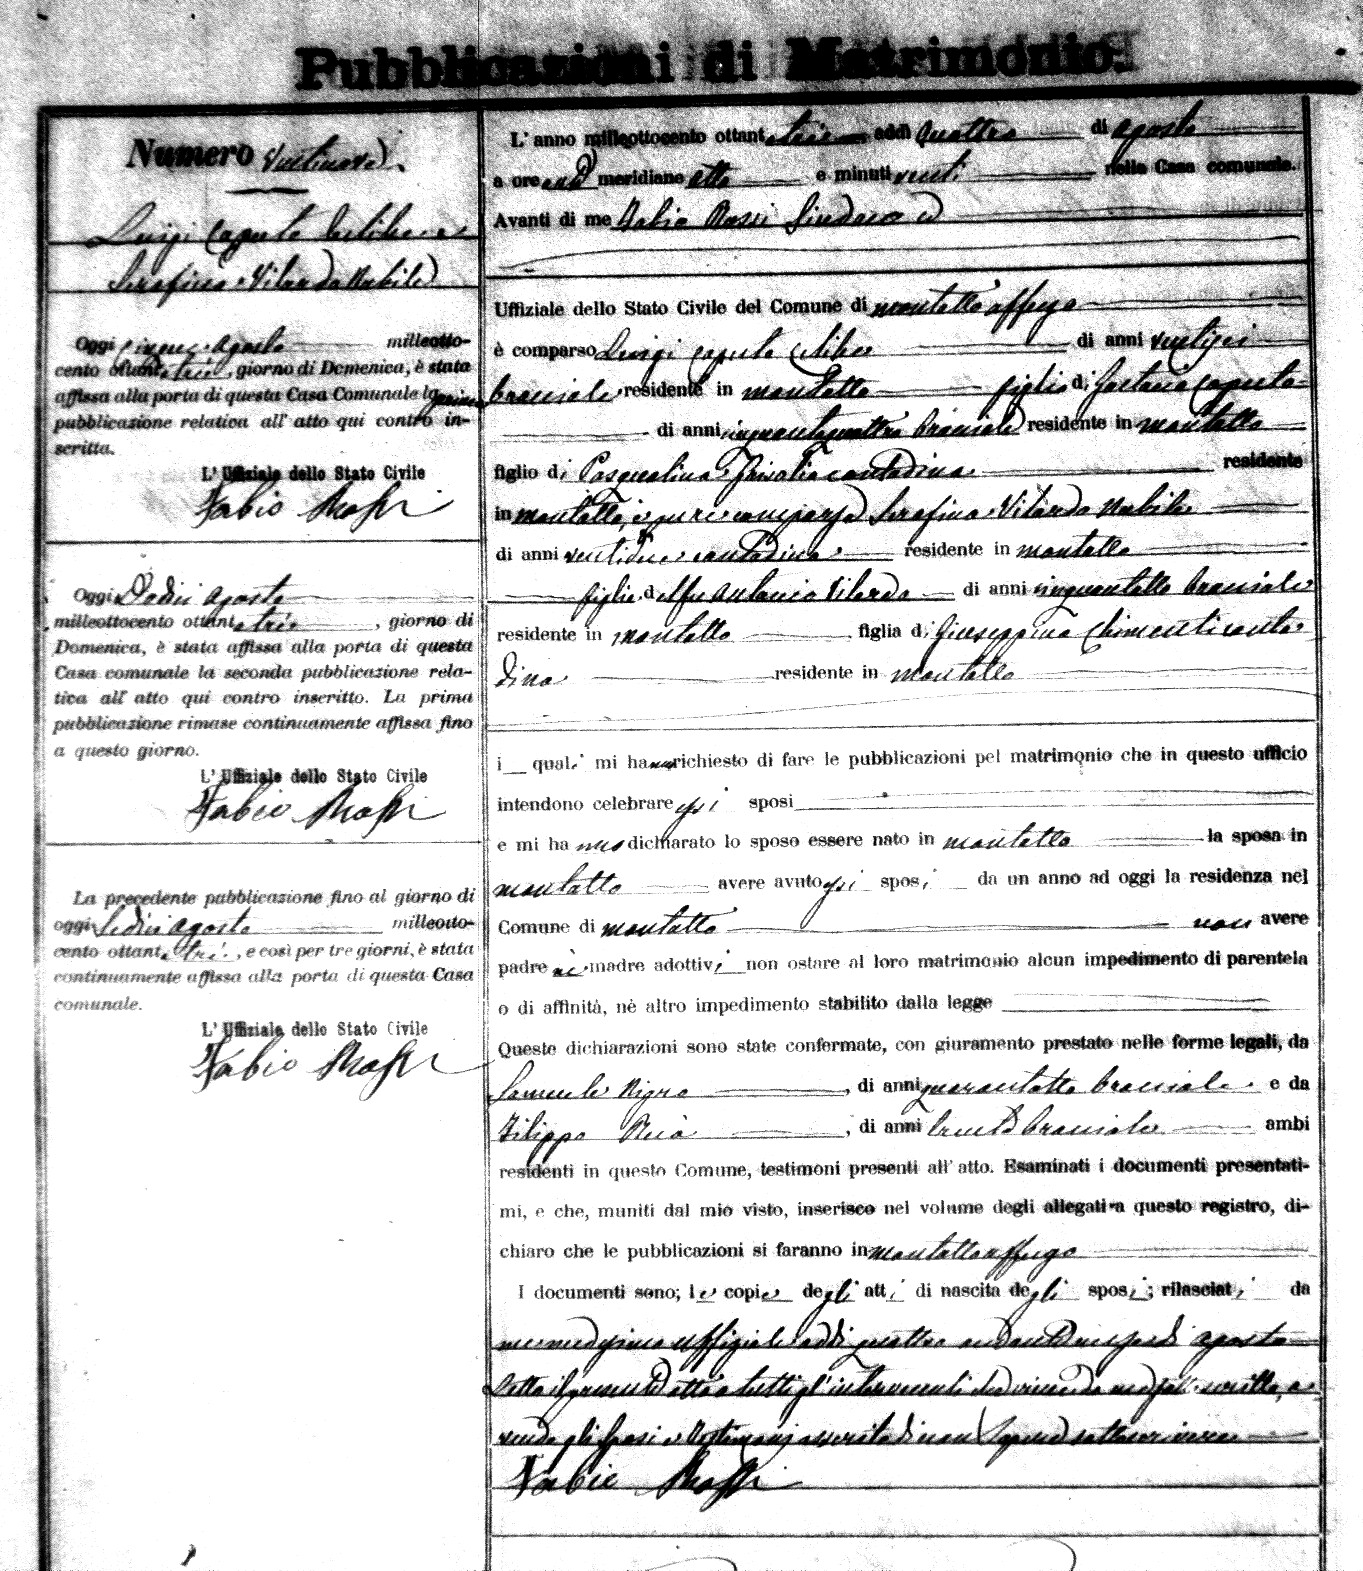 Pubblicazioni di Matrimonio
Numero Ventinove
Luigi Caputo celibe e
Serafina Vilardo Nubile
Oggi Cinque Agosto milleotto-
cento ottantatrè, giorno di Domenica, è stata
affissa alla porta di questa Casa Comunale la prima
pubblicazione relativa all' atto qui contro in-
scritta.
L' Uffiziale dello Stato Civile
Fabio Rossi
Oggi Dodici Agosto
milleottocento ottantatrè, giorno di
Domenica, è stata affissa alla porta di questa
Casa comunale la seconda pubblicazione rela-
tica all' atto qui contro inscritto. La prima
pubblicazione rimase continuamente affissa fino
a questo giorno.
L' Uffiziale dello Stato Civile
Fabio Rossi
La precedente pubblicazione fino al giorno di
oggi Sedici Agosto milleotto-
cento ottantatrè, e così per tre giorni, è stata
continuamente affissa alla porta di questa Casa
comunale.
L' Uffiziale dello Stato Civile
Fabio Rossi
L' anno milleottocento ottantatrè addì quattro di Agosto
a ore anti meridiane otto e minuti venti nella Casa comunale.
Avanti di me Fabio Rossi Sindaco ed
Uffiziale dello Stato Civile del Comune di Montalto Uffugo
è comparso Luigi Caputo celibe di anni ventisei
bracciale residente in Montalto figlio di Gaetano Caputo
di anni cinquantaquattro bracciale residente in Montalto
figlio di Pasqualina contadina residente
in Montalto, è pure comparsa Serafina Vilardo Nubile
di anni ventidue contadina residente in Montalto
figlia del fu Antonio Vilardo di anni cinquantotto bracciale
residente in Montalto figlia di Giuseppina Chimenti conta
dina residente in Montalto
i quali mi hanno richiesto di fare le pubblicazioni pel matrimonio che in questo ufficio
intendono celebrare essi sposi
e mi hanno dichiarato lo sposo essere nato in Montalto la sposa in
Montalto avere avuto essi sposi da un anno ad oggi la residenza nel
Comune di Montalto non avere
padre nè madre adottivi non ostare al loro matrimonio alcun impedimento di parentela
o di affinità, nè altro impedimento stabilito dalla legge
Queste dichiarazioni sono state confermate, con giuramento prestato nelle forme legali, da
Samuele Nigro, di anni quarantotto bracciale e da
Filippo, di anni trenta bracciale ambi
residenti in questo Comune, testimoni presenti all' atto. Esaminati i documenti presentati-
mi, e che, muniti dal mio visto, inserisco nel volume degli allegati a questo registro, di-
chiaro che le pubblicazioni si faranno in Montalto Uffugo
I documenti sono; le copie degli atti di nascita degli sposi; rilasciati da
me medesimo Uffiziale addì quattro andante mese di Agosto
Letto il presente atto a tutti gl' intervenuti da me sottoscritto, a-
vendo gli sposi e testimoni asserito di non sapere sottoscrivere
Fabio Rossi